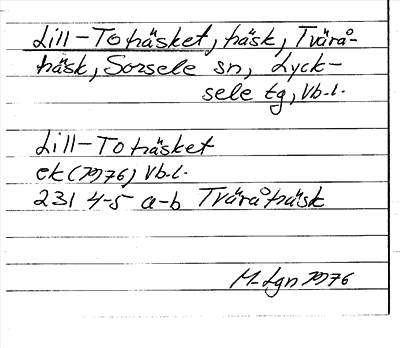 Lill-Toträsket, träsk, Tvärå-
träsk, Sorsele sn, Lyck-
sele tg, Vb.l.
Lill-Toträsket
ek (1976) Vb.l.
231 4-5 a-b Tväråträsk
M-Lgn 1976